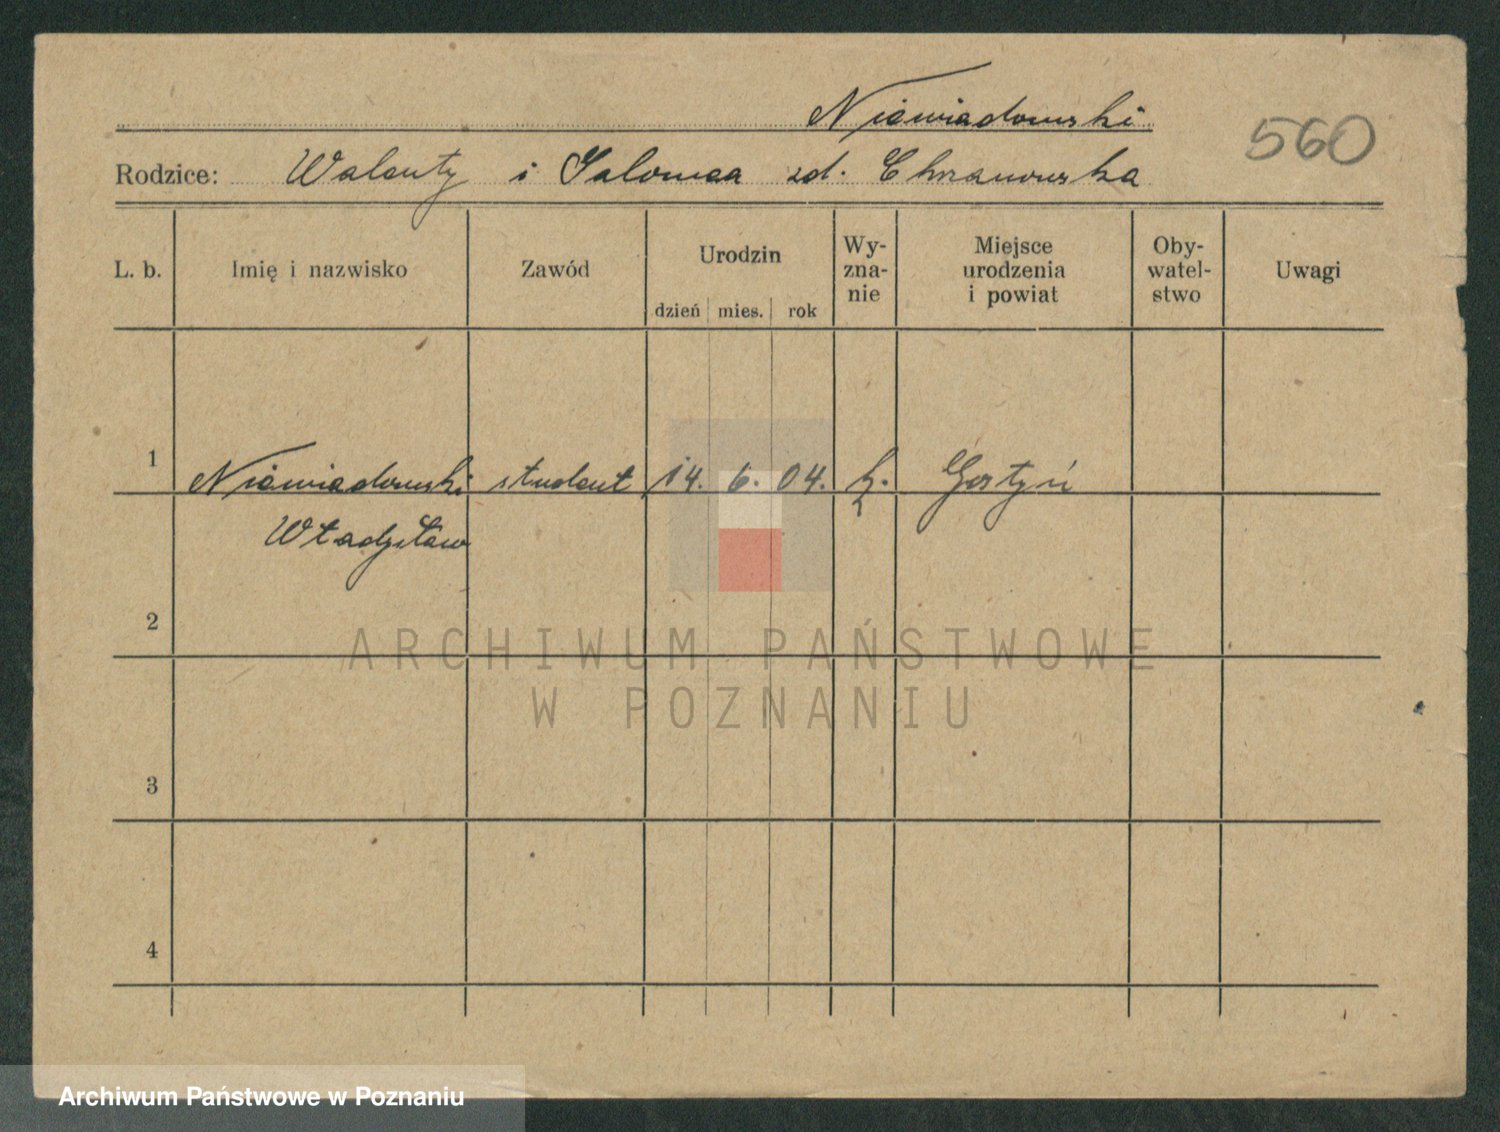 Niewiadomski
560
Rodzice: Walenty i Salomea zd. Chrzanowska
L. b. Imię i nazwisko Zawód Urodzin dzień mies. rok Wy-
zna-
nie Miejsce
urodzenia
i powiat Oby-
watel-
stwo Uwagi
1 Niewiadomski student 14. 6. 04. k. Gostyń
Władysław
2
ARCHIWUM PAŃSTWOWE
W POZNANIU
3
4
Archiwum Państwowe w Poznaniu